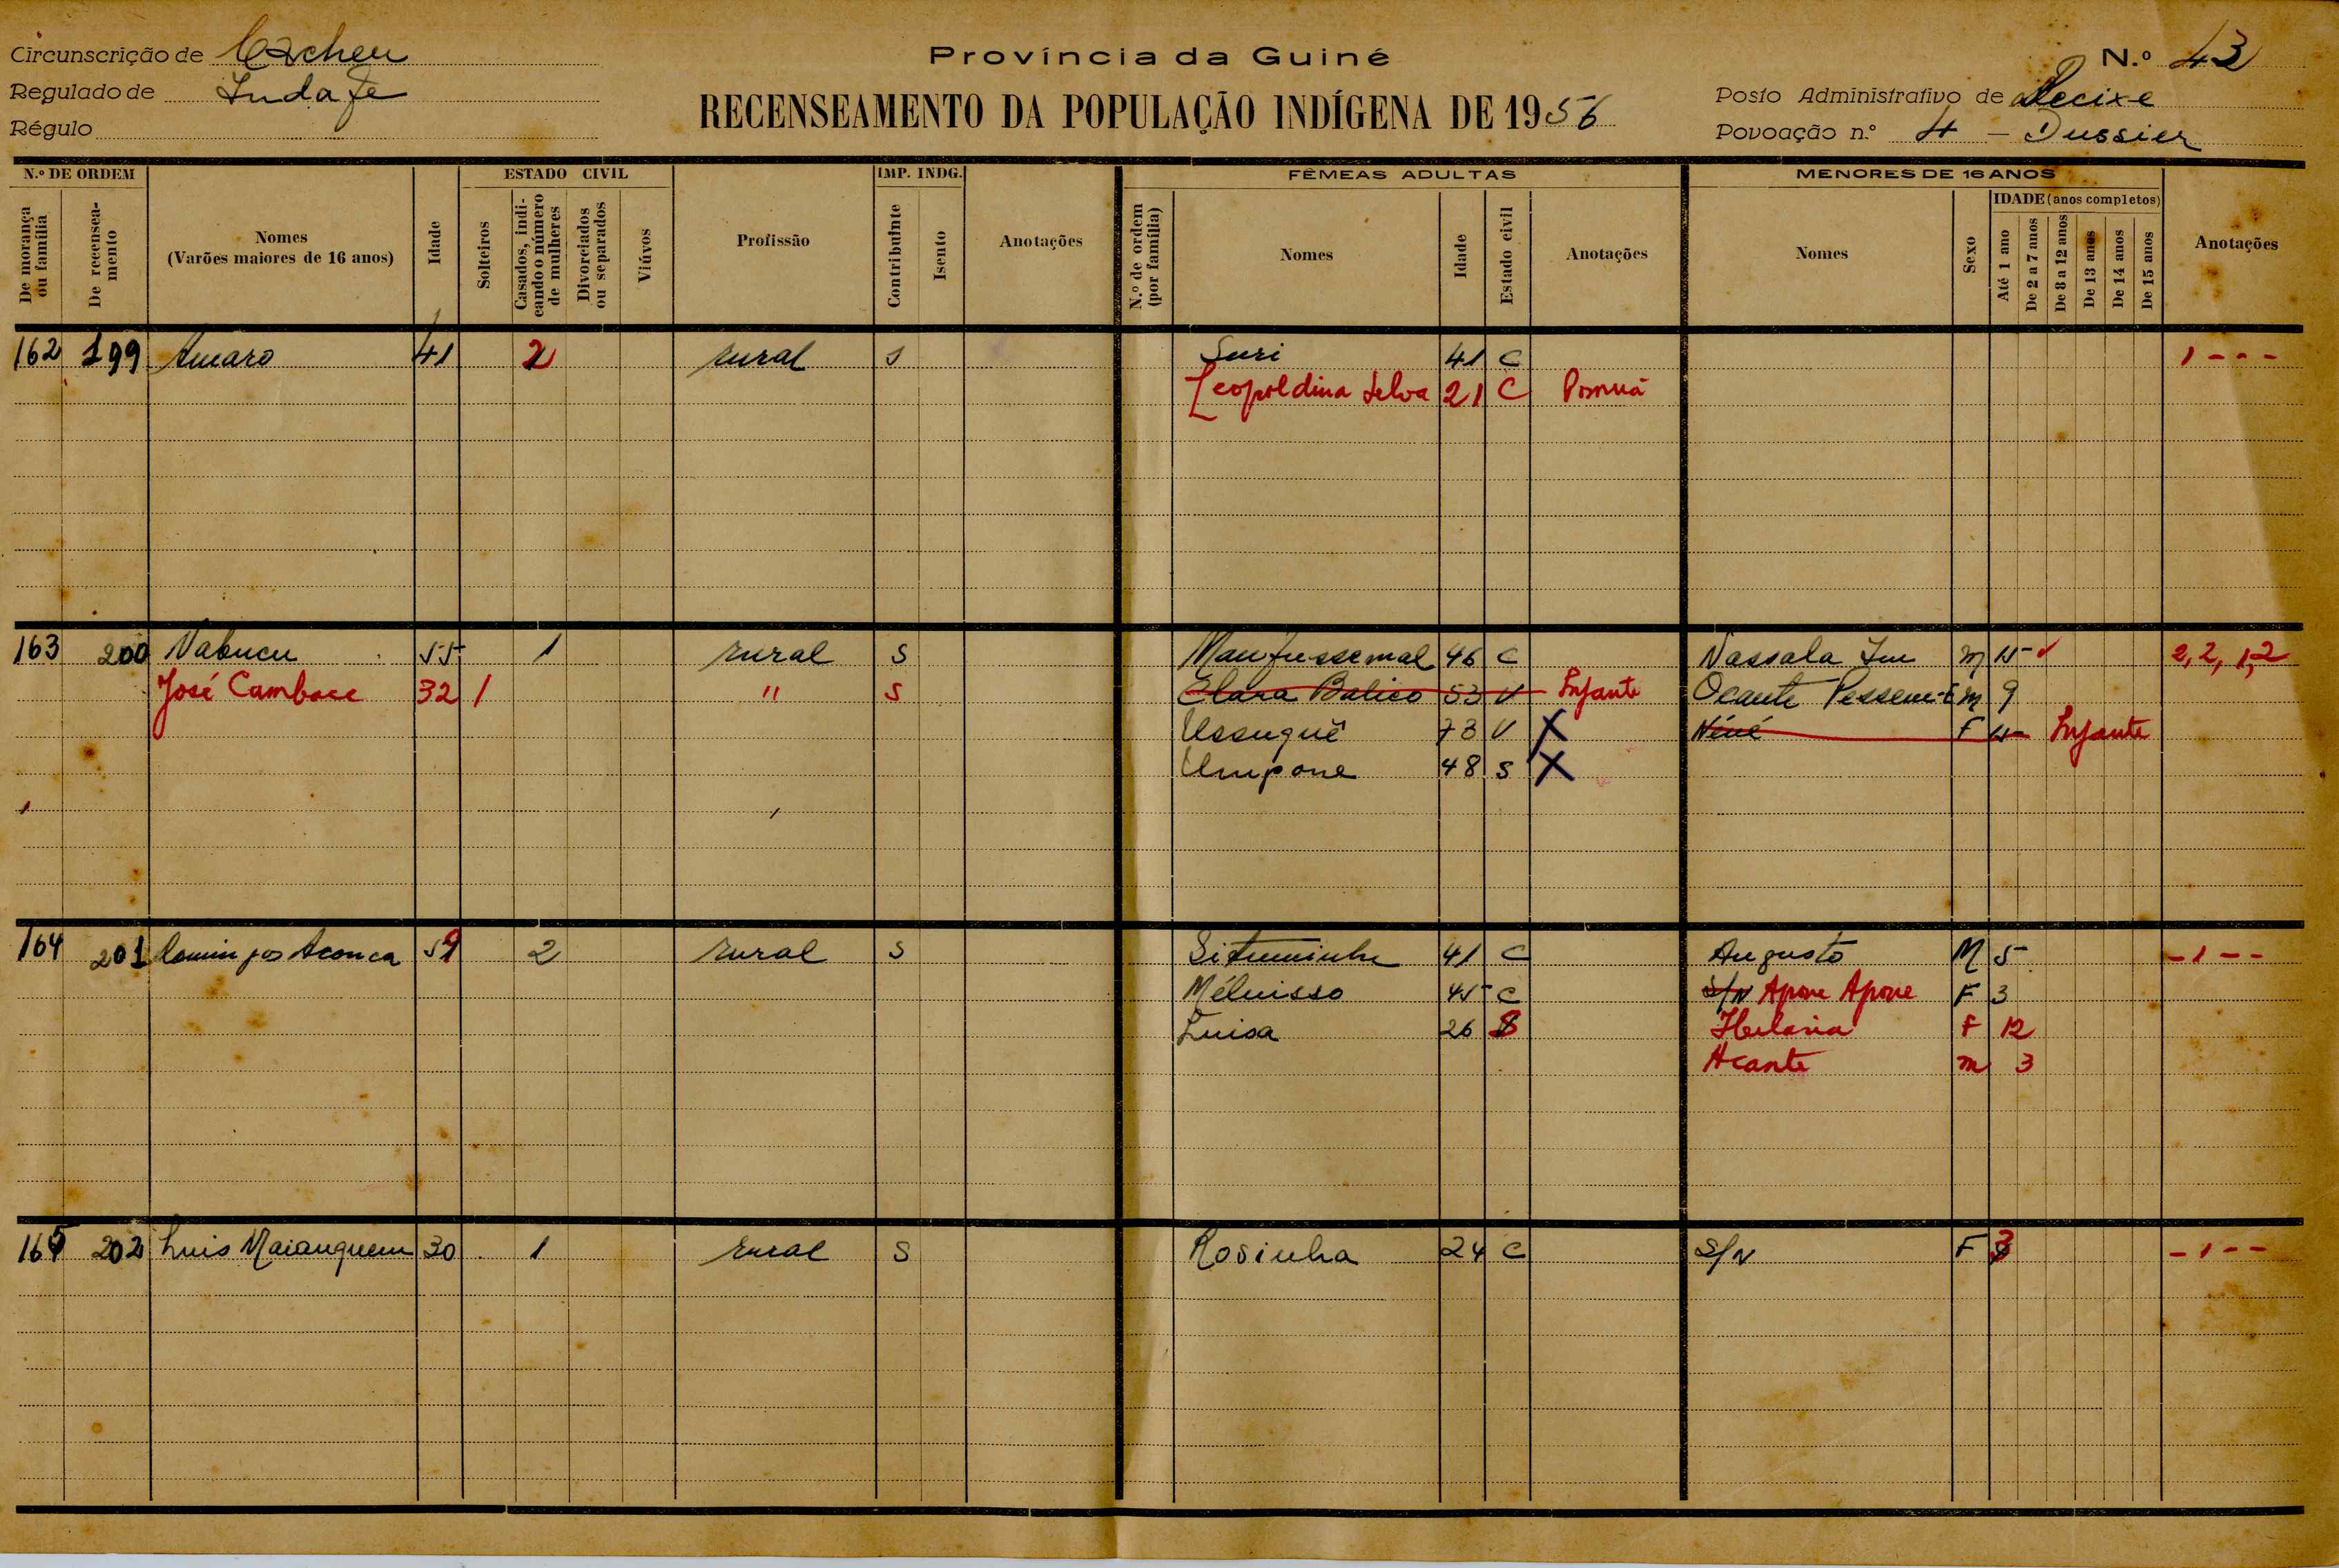 Circunscrição de Cacheu
Regulado de Indafe
Régulo
Província da Guiné
RECENSEAMENTO DA POPULAÇÃO INDÍGENA DE 1956
N.º 43
Posto Administrativo de Pecixe
Povoação n.º 4 - Dussier
N.º DE ORDEM
De morança ou família
De recenseamento
Nomes
(Varões maiores de 16 anos)
Idade
ESTADO CIVIL
Solteiros
Casados, indicando o número de mulheres
Divorciados ou separados
Viúvos
Profissão
IMP. INDG.
Contribuinte
Isento
Anotações
FÊMEAS ADULTAS
N.º de ordem (por família)
Nomes
Idade
Estado civil
Anotações
MENORES DE 16 ANOS
Nomes
Sexo
IDADE (anos completos)
Até 1 ano
De 2 a 7 anos
De 8 a 12 anos
De 13 anos
De 14 anos
De 15 anos
Anotações
162 199 Amaro 41 2 rural S Suri 41 C 1 - - -
Leopoldina Selva 21 C
163 200 Nabucu 55 1 rural S Manfussemal 46 C Nassala M 15 2, 2, 1, 2
José Cambace 32 1 " S Clara Balico 53 V Infante Ocante M 9
Ussuguê 73 V X Néné F Infante
Umpone 48 S X
164 201 Domingos Aconca 59 2 rural S 41 C Augusto M 5 - 1 - -
Méluisso 45 C S/N Apone Apone F 3
Luisa 26 S Helaria F 12
Acante M 3
165 202 Luis Maianquem 30 1 rural S Rosinha 24 C S/N F 3 - 1 - -